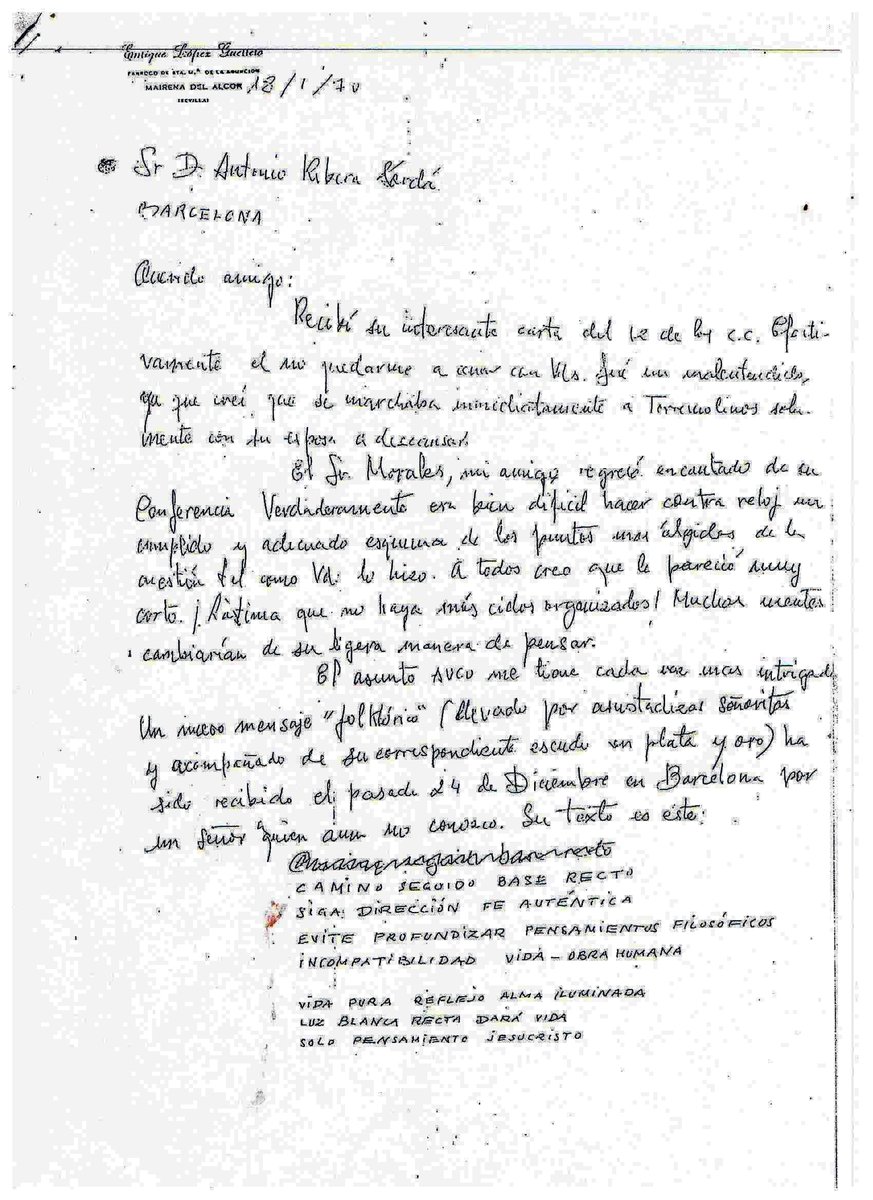 Enrique López Guerrero
PARROCO DE STA. M.ª DE LA ASUNCION
MAIRENA DEL ALCOR 18/1/70
(SEVILLA)
Sr D. Antonio Ribera Jordá
BARCELONA
Querido amigo:
Recibí su interesante carta del 12 de los c.c. Efecti-
vamente el no quedarme a cenar con Vds. fué un malentendido,
ya que creí que se marchaba inmediatamente a Torremolinos sola-
mente con su esposa a descansar.
El Sr. Morales, mi amigo regresó encantado de su
Conferencia Verdaderamente era bien dificil hacer contra reloj un
cumplido y adecuado esquema de los puntos mas álgidos de la
cuestión tal como Vd. lo hizo. A todos creo que le pareció muy
corto. ¡Lástima que no haya más ciclos organizados! Muchas mentes
cambiarían de su ligera manera de pensar.
El asunto me tiene cada vez mas intrigado
Un nuevo mensaje "folklórico" (llevado por señoritas
y acompañado de su correspondiente escudo en plata y oro) ha
sido recibido el pasado 24 de Diciembre en Barcelona por
un señor quien aun no conozco. Su texto es éste:
CAMINO SEGUIDO BASE RECTO
SIGA DIRECCIÓN FE AUTÉNTICA
EVITE PROFUNDIZAR PENSAMIENTOS FILOSÓFICOS
INCOMPATIBILIDAD VIDA - OBRA HUMANA
VIDA PURA REFLEJO ALMA ILUMINADA
LUZ BLANCA RECTA DARÁ VIDA
SOLO PENSAMIENTO JESUCRISTO